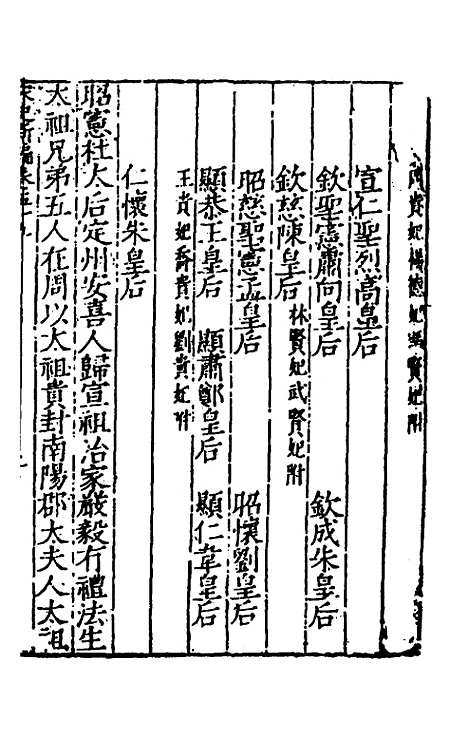 貴妃楊德妃馮賢妃附
宣仁聖烈高皇后
欽聖憲肅向皇后 欽成朱皇后
欽慈陳皇后 林賢妃武賢妃附
昭慈聖憲孟皇后 昭懷劉皇后
顯恭王皇后 顯肅鄭皇后 顯仁韋皇后
王貴妃喬貴妃劉貴妃附
仁懷朱皇后
昭憲杜太后定州安喜人歸宣祖治家嚴毅有禮法生
太祖兄弟五人在周以太祖貴封南陽郡太夫人太祖
宋史新編卷五十九